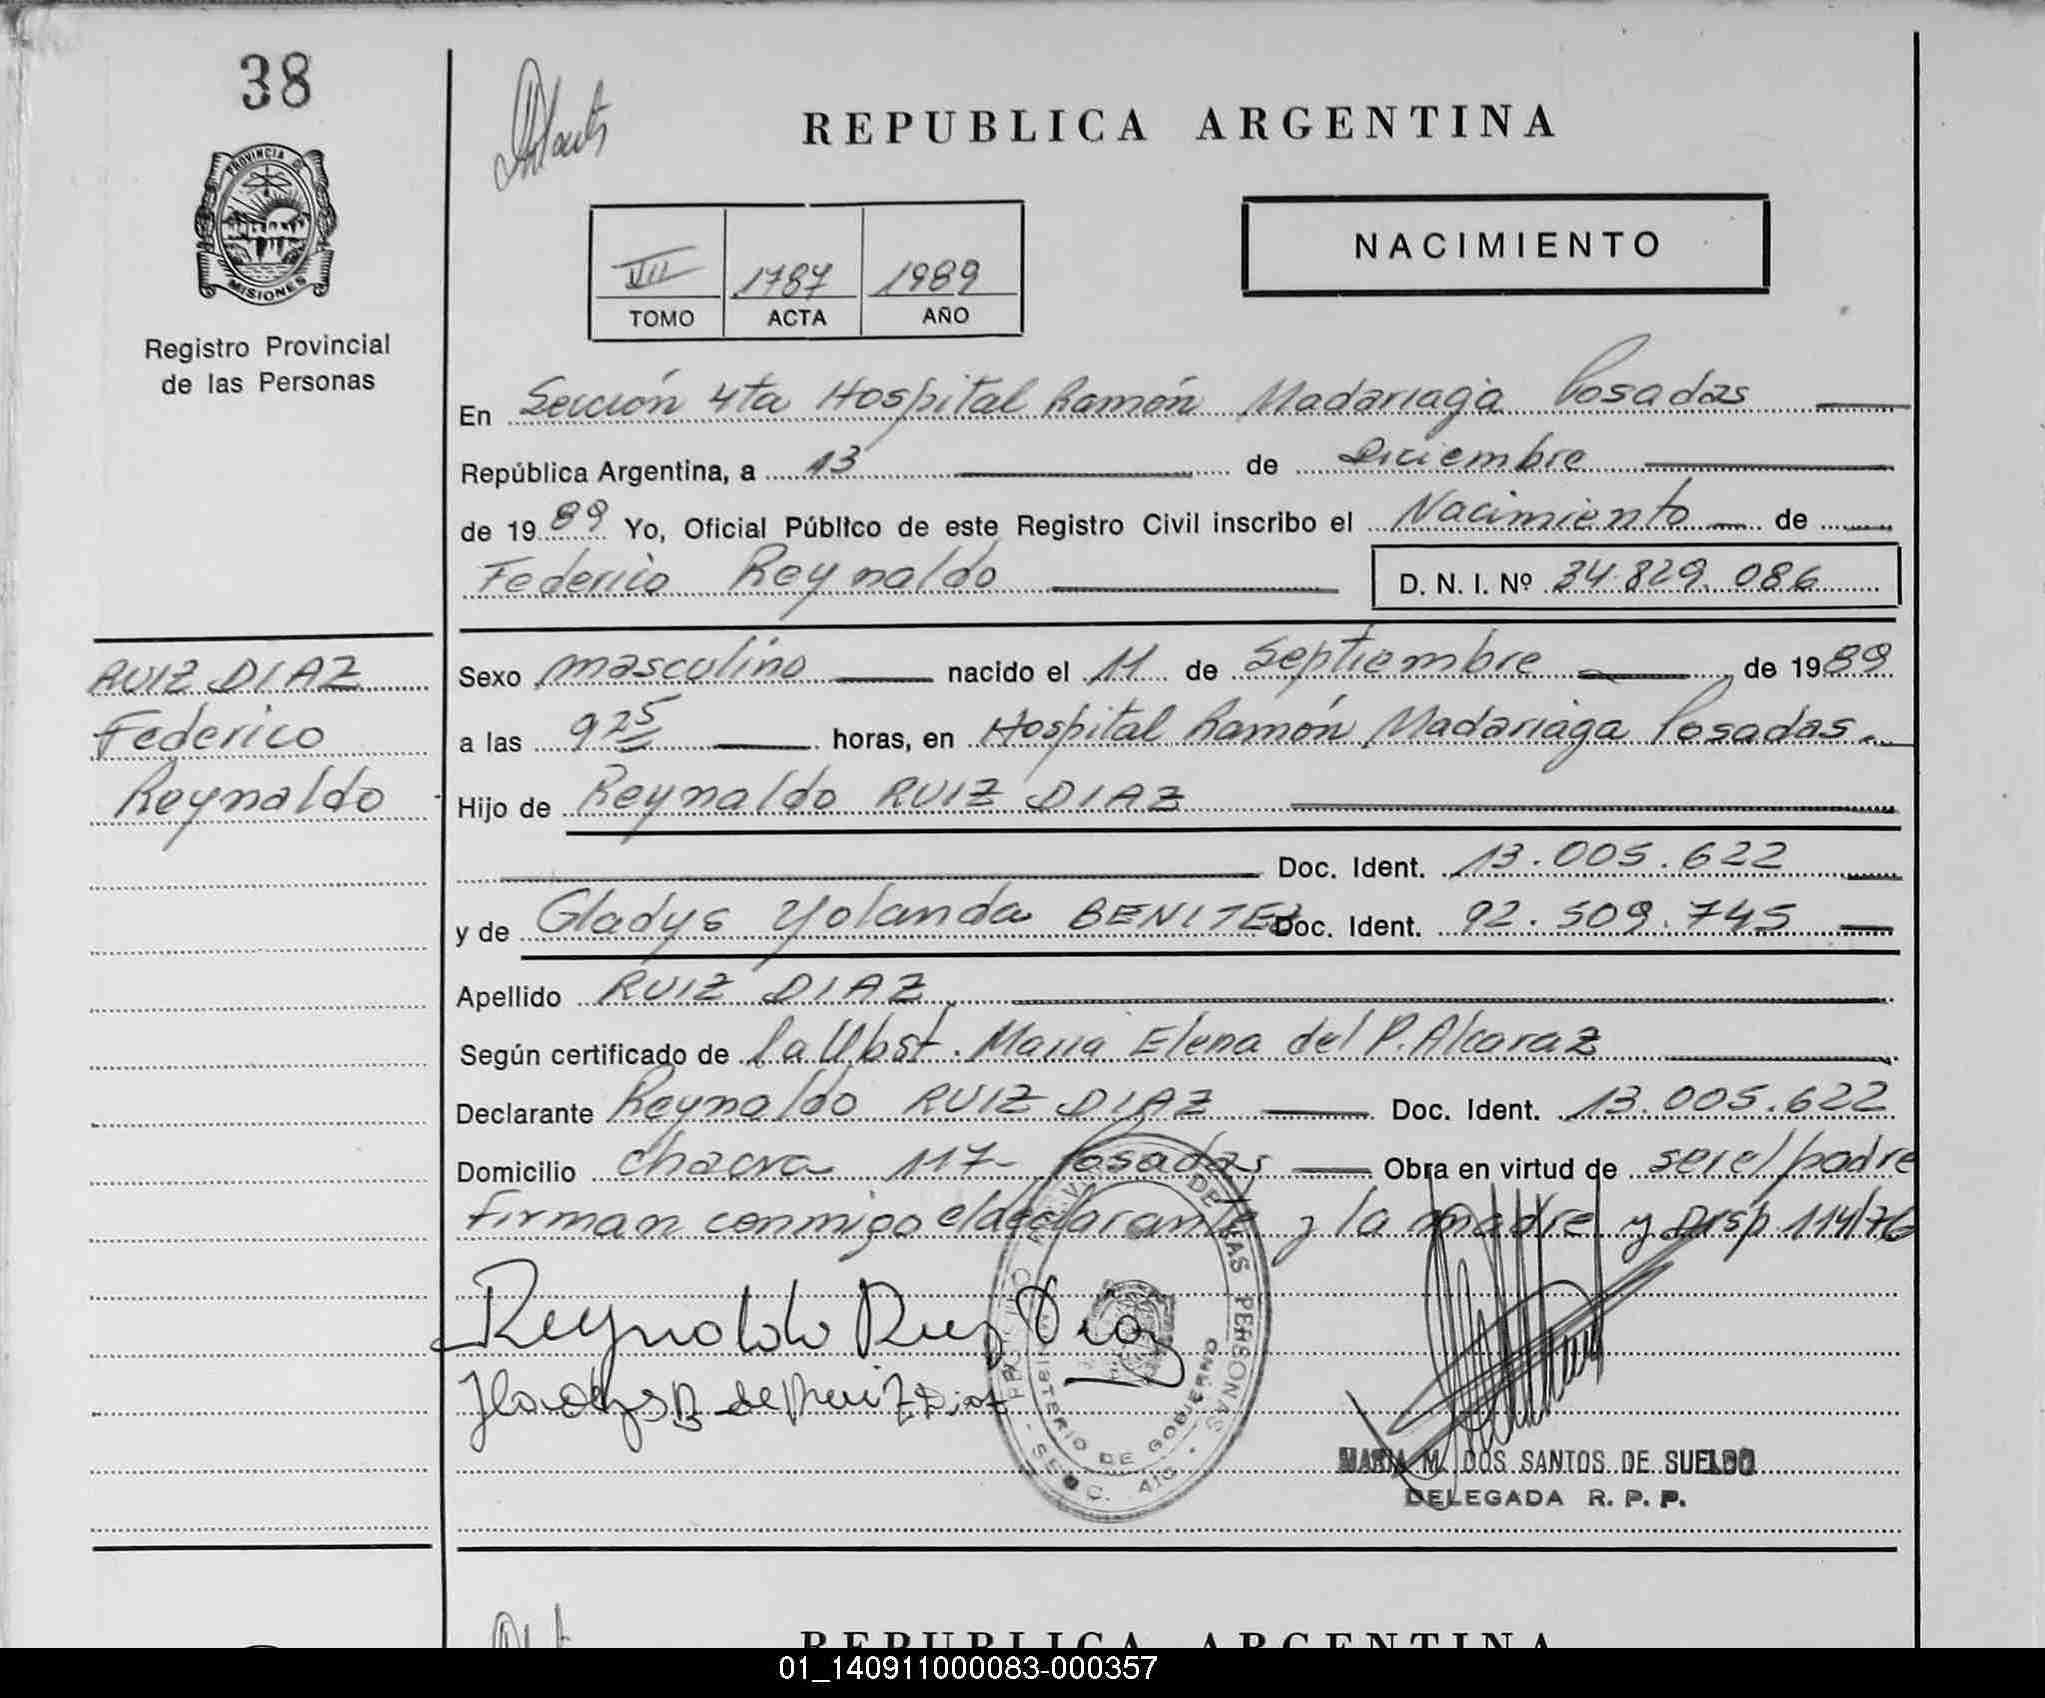 38
REPUBLICA ARGENTINA
PROVINCIA DE
MISIONES
Registro Provincial
de las Personas
VII 1787 1989
TOMO ACTA AÑO
NACIMIENTO
En Sección 4ta Hospital Ramón Madariaga Posadas
República Argentina, a 13 de Diciembre
de 1989 Yo, Oficial Público de este Registro Civil inscribo el Nacimiento de
Federico Reynaldo D. N. I. Nº 34.829.086
RUIZ DIAZ
Federico
Reynaldo
Sexo masculino nacido el 11 de Septiembre de 1989
a las 9 25 horas, en Hospital Ramón Madariaga Posadas.
Hijo de Reynaldo RUIZ DIAZ
Doc. Ident. 13.005.622
y de Gladys Yolanda BENITEZ Doc. Ident. 92.509.745
Apellido RUIZ DIAZ
Según certificado de la Obst. Maria Elena del P. Alcaraz
Declarante Reynaldo RUIZ DIAZ Doc. Ident. 13.005.622
Domicilio chacra 117- Posadas Obra en virtud de ser el padre
Firman conmigo el declarante y la madre y Disp 114/76
Reynaldo Ruiz Diaz
Gladys B de Ruiz Diaz
DE LAS PERSONAS
MINISTERIO DE GOBIERNO
MARIA M. DOS SANTOS DE SUELDO
DELEGADA R. P. P.
REPUBLICA ARGENTINA
01_140911000083-000357